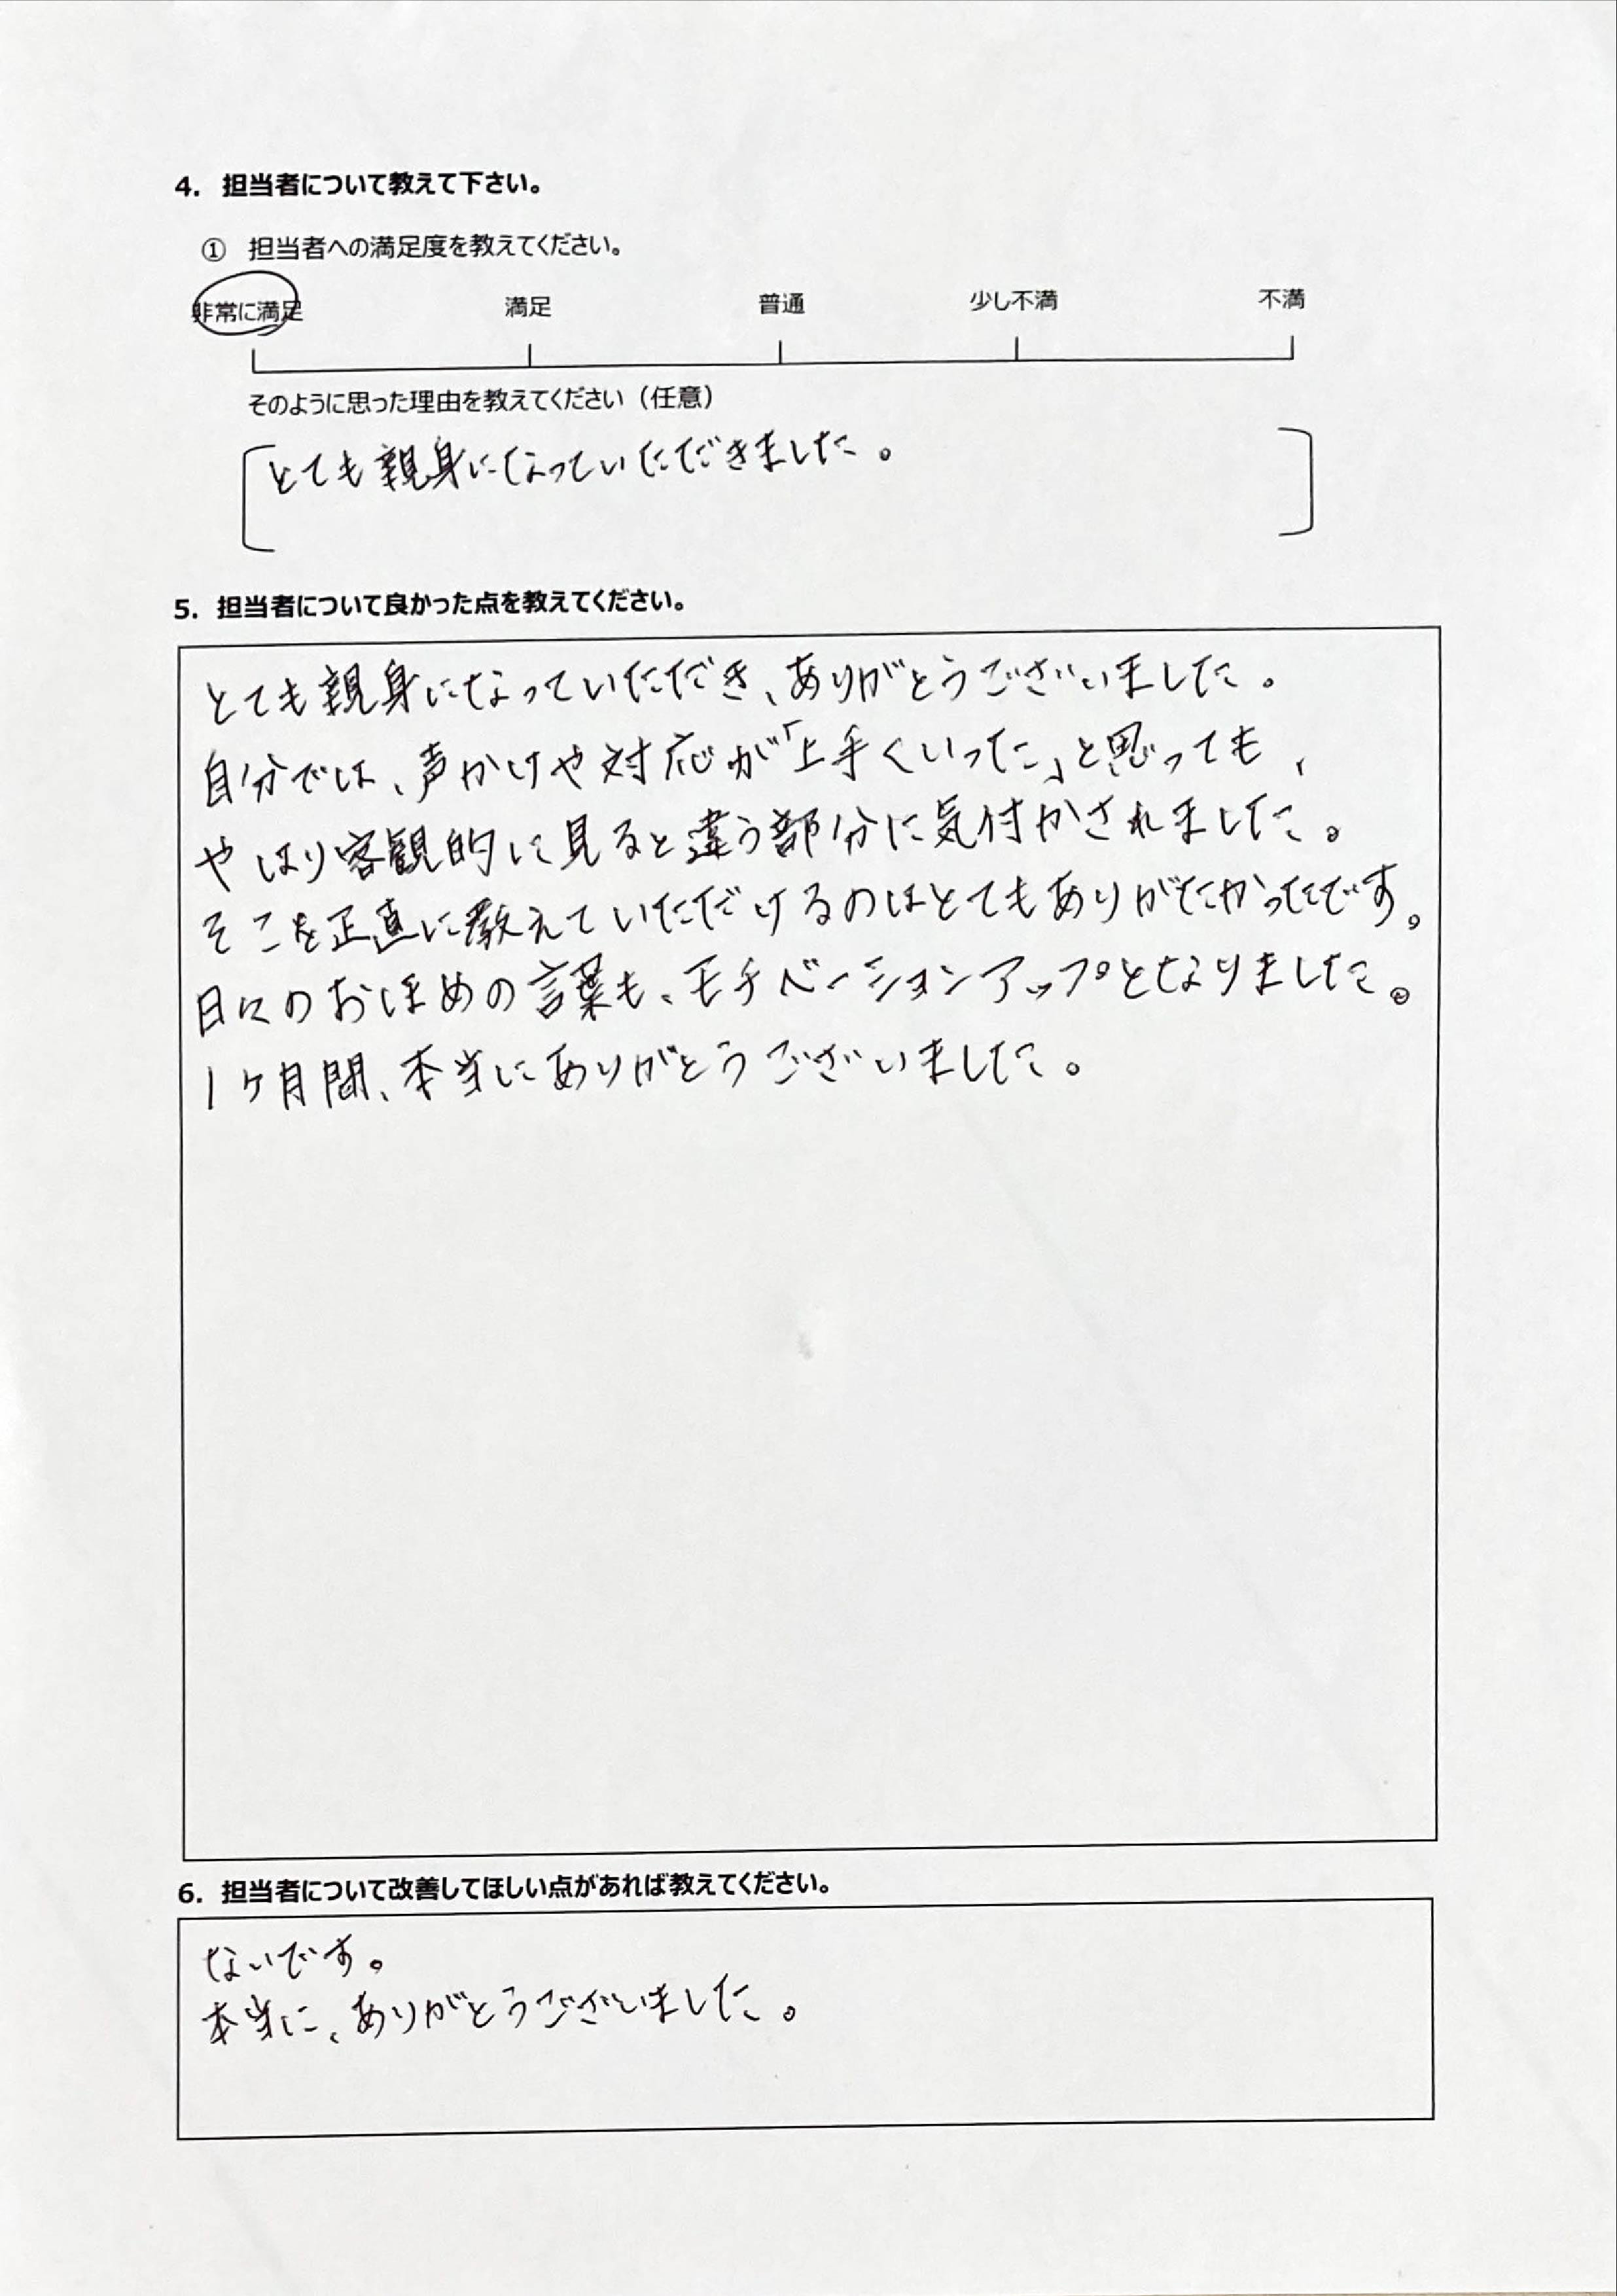 4. 担当者について教えて下さい。
① 担当者への満足度を教えてください。
非常に満足 満足 普通 少し不満 不満
そのように思った理由を教えてください（任意）
とても親身になっていただきました。
5. 担当者について良かった点を教えてください。
とても親身になっていただき、ありがとうございました。
自分では、声かけや対応が「上手くいった」と思っても、
やはり客観的に見ると違う部分に気付かされました。
そこを正直に教えていただけるのはとてもありがたかったです。
日々のおほめの言葉も、モチベーションアップとなりました。
1ヶ月間、本当にありがとうございました。
6. 担当者について改善してほしい点があれば教えてください。
ないです。
本当に、ありがとうございました。